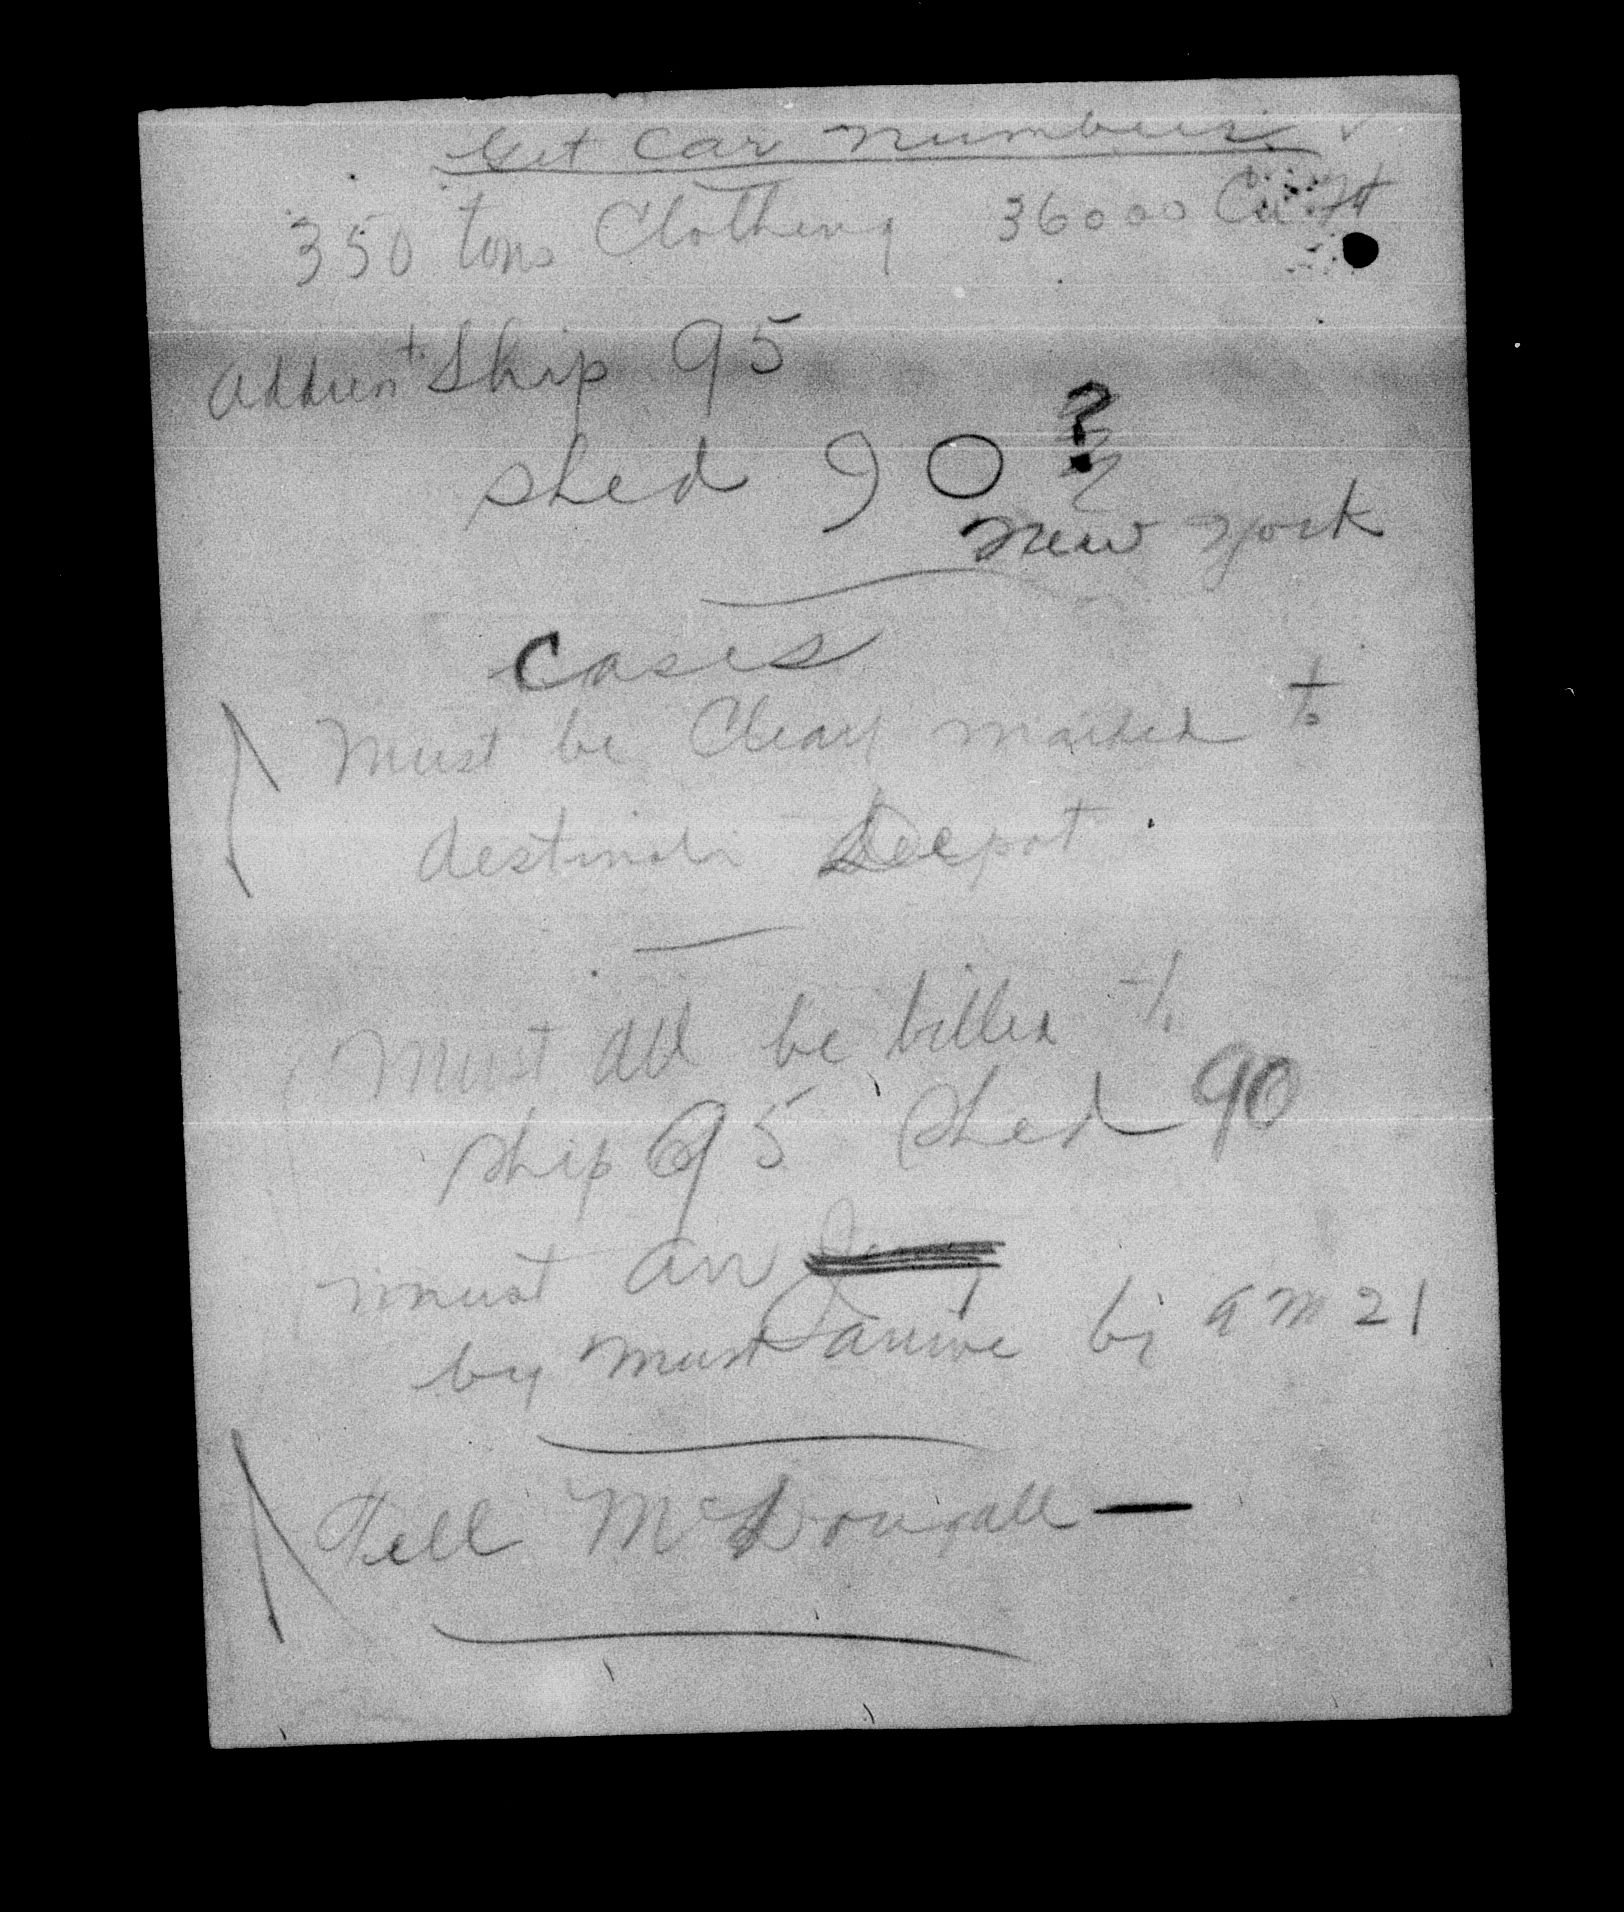 Get Car numbers
350 tons Clothing 36000 Cu Ft
Address to Ship 95
shed 90 ?
New York
Cases
Must be Clearly marked to
destination Deepot
Must all be billed to
ship 95 Shed 90
must arr
by must arrive by AM 21
Tell McDougall —